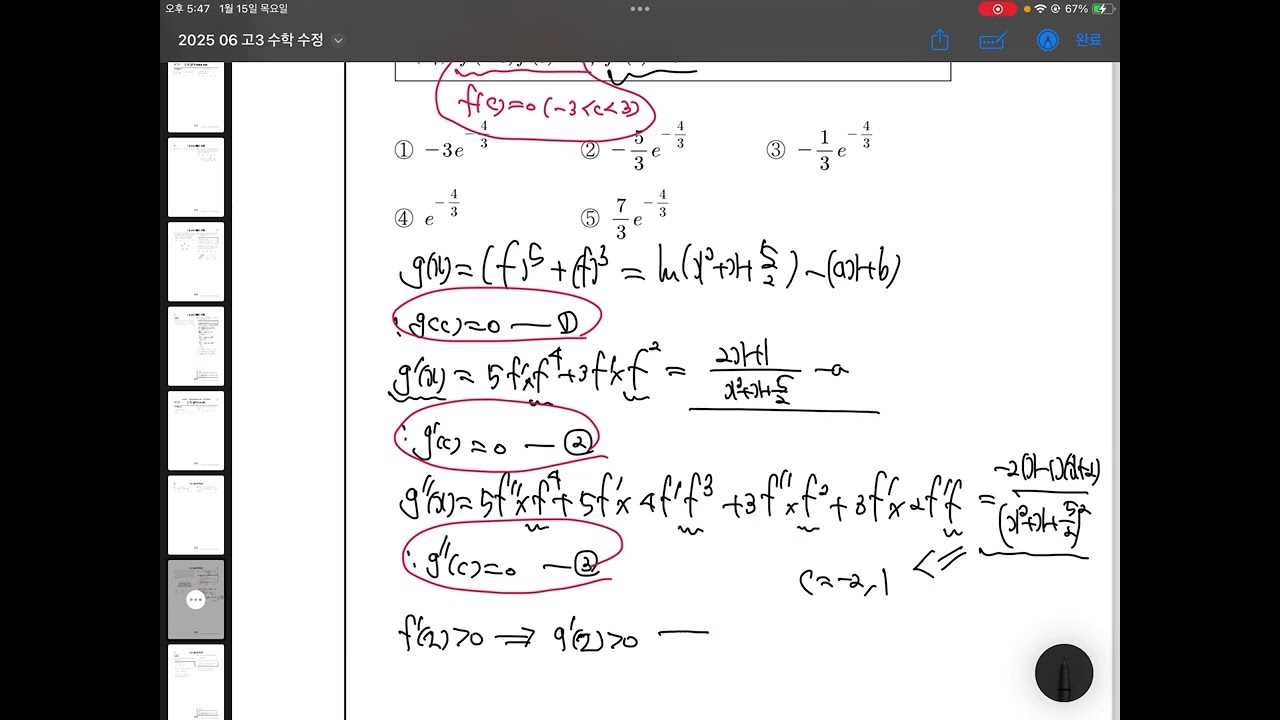 오후 5:47 1월 15일 목요일
67%
2025 06 고3 수학 수정
완료
f(c)=0 (-3<c<3)
① -3e^{-4/3} ② -5/3 e^{-4/3} ③ -1/3 e^{-4/3}
④ e^{-4/3} ⑤ 7/3 e^{-4/3}
g(x)=(f)^5+(f)^3=ln(x²+x+5/2)-(ax+b)
∴ g(c)=0 — ①
g'(x)=5f'×f^4+3f'×f^2=(2x+1)/(x²+x+5/2)-a
∴ g'(c)=0 — ②
g''(x)=5f''×f^4+5f'×4f'f^3+3f''×f^2+3f'×2f'f=-2(x-1)(x+2)/(x²+x+5/2)²
∴ g''(c)=0 — ③
c=-2,1 <=
f'(2)>0 ⟹ g'(2)>0 —